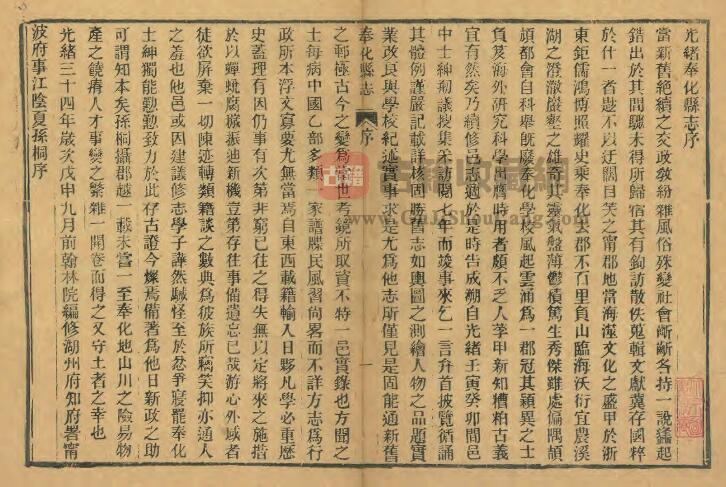 光緒奉化縣志序
當新舊絕續之交政教紛雜風俗殊變社會斷斷各持一說鏠起
錯出於其間驟未得所歸宿其有鉤訪散佚蒐輯文獻冀存國粹
於什一者尠不以迂闊目笑之甯郡地當海澨文化之盛甲於浙
東鉅儒鴻博照耀史乘奉化去郡不百里負山臨海沃衍宜農溪
湖之澄澈巖壑之雄奇其靈氣盤薄鬱積篤生秀傑雖處偏隅頡
頏都會自科舉旣廢奉化學校風起雲涌爲一郡冠其穎異之士
負笈海外研究科學出膺時用者頗不乏人茅甲新知糟粕古義
宜有然矣乃續修邑志適於是時告成溯自光緒壬寅癸卯間邑
中士紳剏議搜集采訪閱七年而竣事來乞一言弁首披覽循誦
其體例謹嚴記載詳核固勝舊志如輿圖之測繪人物之品題實
業改良與學校紀述實事求是尤爲他志所僅見是固能通新舊
奉化縣志 序 一
之郵極古今之變爲法世考鏡所取資不特一邑實錄也方聞之
士每病中國乙部多類一家譜牒民風習尙畧而不詳方志爲行
政所本浮文寡要尤無當焉自東西載籍輸入日夥凡學必重歷
史蓋理有因仍事有次第非窮已往之得失無以定將來之施措
於以蟬蛻腐穢振迪新機豈第存往事備遺忘已哉游心外域者
徒欲屏棄一切陳迹轉類籍談之數典爲彼族所竊笑抑亦通人
之羞也他邑或因建議修志學子譁然駴怪至於忿爭寢罷奉化
士紳獨能懃懃致力於此存古證今燦焉備著爲他日新政之助
可謂知本矣孫桐攝郡越一載未嘗一至奉化地山川之險易物
產之饒瘠人才事變之繁雜一開卷而得之又守土者之幸也
光緒三十四年歲次戊申九月前翰林院編修湖州府知府署甯
波府事江陰夏孫桐序
古籍收藏網
www.GuJiShouCang.com